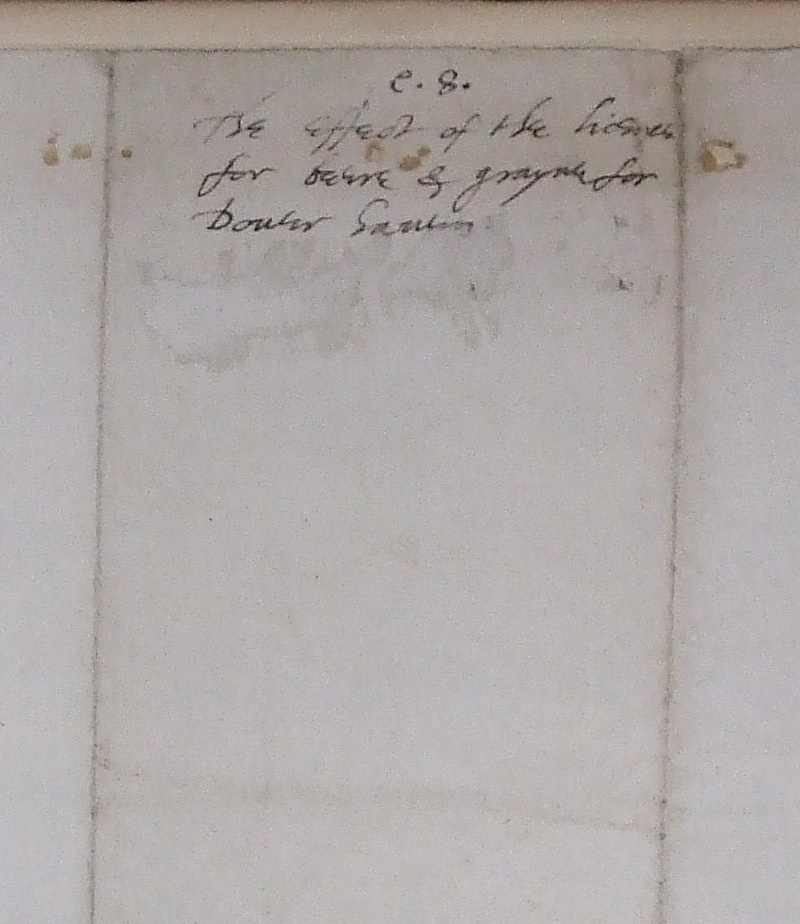 e. 8.
The effect of the licence
for beere & grayne for
Dover haven